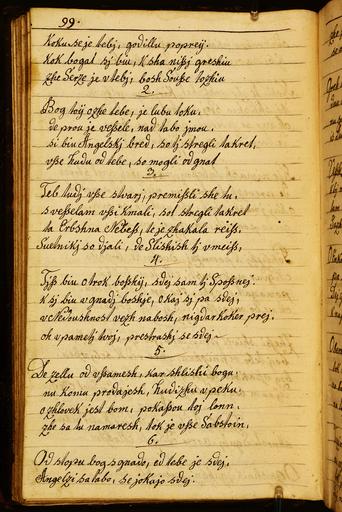 99.
Koku se je tebj, godillu poprej.
kok bogat sj biu, k sha nißj greshiu
zhe Serze je v tebj, bosh Souße tozhiu
2.
Bog tvoj ozhe tebe, je lubu toku.
de prou je veßele, nad tabo jmou.
si biu Angelskj bred, so tj stregli takret,
vße hudu od tebe, so mogli odgnat
3.
Teb tudj vße stvarj, premißli she tu,
s veßelam vßi kmali, sot stregli takret
ta Erbshna Neßeß, te je zhakala reiß,
Suetnikj so djali, de Slishish tj vmeiß,
4.
Tjß biu otrok boshij, sdej sam tj Spoßnej.
k sj biu v gnadj boshje, okaj sj pa sdej,
v Nedushnost vezh na bosh, nigdar koker prej.
oh v pametj tvoj, prestrashj se sdej
5.
De zellu od vßamesh, kar shlishi bogu.
nu komu prodajesh, hudizhu v peku.
o zhlovek jest bom, pokaßou toj lonn.
zhe sa tu namaresh, tok je vße Sabstoin.
6.
Od stopu bog s gnado, od tebe je sdej.
Angelzi sa tabo, se jokajo sdej.